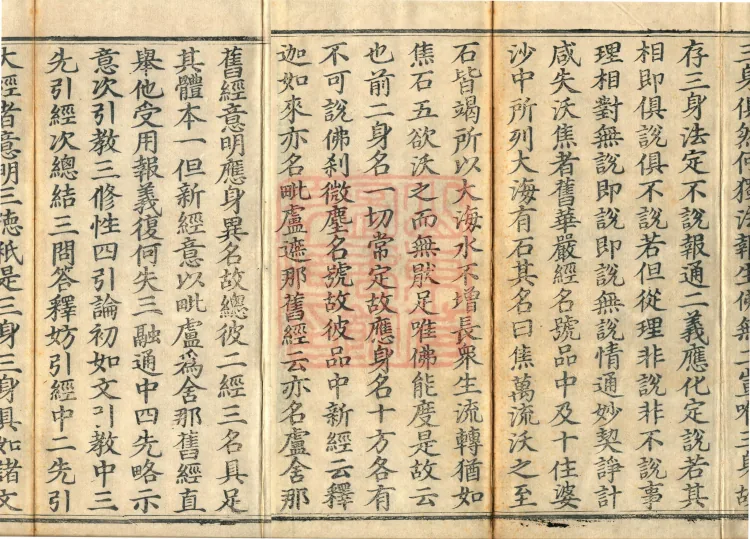 存三身法定不說報通二義應化定說若其
相即俱說俱不說若但從理非說非不說事
理相對無說即說即說無說情通妙契諍計
咸失沃焦者舊華嚴經名號品中及十住婆
沙中所列大海有石其名曰焦萬流沃之至
石皆竭所以大海水不增長衆生流轉猶如
焦石五欲沃之而無猒足唯佛能度是故云
也前二身名一切常定故應身名十方各有
不可說佛刹微塵名號故彼品中新經云釋
迦如來亦名毗盧遮那舊經云亦名盧舍那
舊經意明應身異名故總彼二經三名具足
其體本一但新經意以毗盧爲舍那舊經直
舉他受用報義復何失三融通中四先略示
意次引教三修性四引論初如文引教中三
先引經次總結三問答釋妨引經中二先引
大經者意明三德秖是三身三身具如諸文